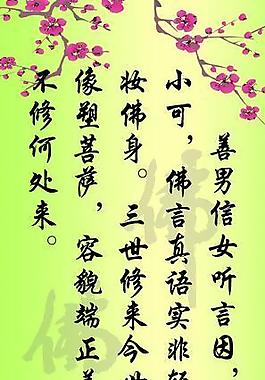 善男信女听言因，
小可，佛言真语实非轻
妆佛身。三世修来今世
像塑菩萨，容貌端正
不修何处来。
佛
佛